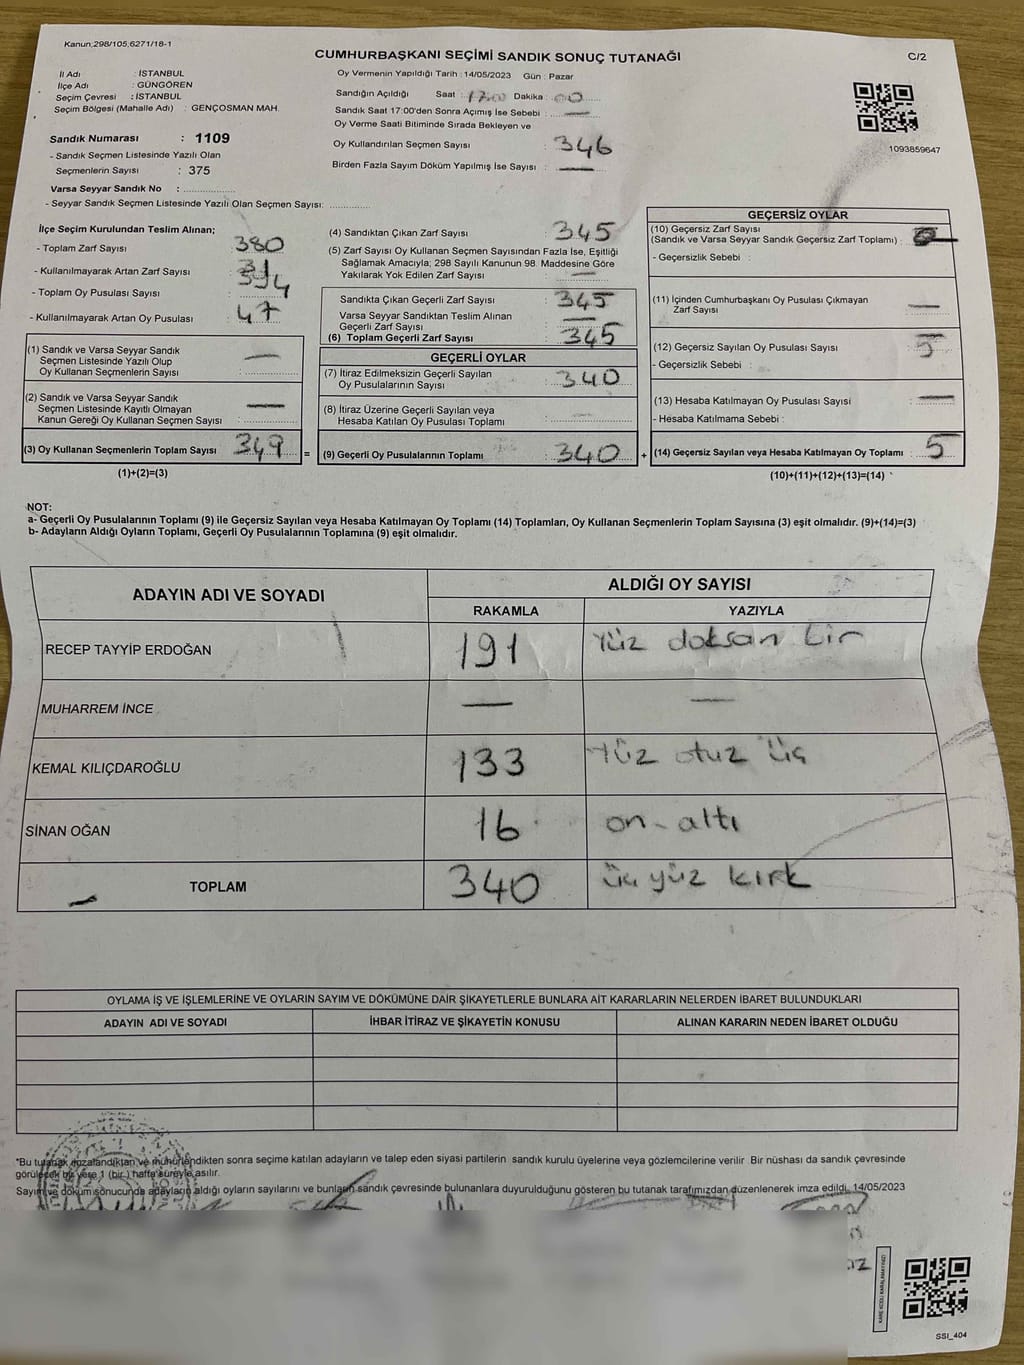 Kanun;298/105;6271/18-1
CUMHURBAŞKANI SEÇİMİ SANDIK SONUÇ TUTANAĞI
C/2
İl Adı : İSTANBUL
İlçe Adı : GÜNGÖREN
Seçim Çevresi : İSTANBUL
Seçim Bölgesi (Mahalle Adı) : GENÇOSMAN MAH.
Sandık Numarası : 1109
- Sandık Seçmen Listesinde Yazılı Olan
Seçmenlerin Sayısı : 375
Varsa Seyyar Sandık No :
- Seyyar Sandık Seçmen Listesinde Yazılı Olan Seçmen Sayısı:
Oy Vermenin Yapıldığı Tarih : 14/05/2023 Gün : Pazar
Sandığın Açıldığı Saat : 17:00 Dakika : 00
Sandık Saat 17:00'den Sonra Açımış İse Sebebi : —
Oy Verme Saati Bitiminde Sırada Bekleyen ve
Oy Kullandırılan Seçmen Sayısı : 346
Birden Fazla Sayım Döküm Yapılmış İse Sayısı : —
1093859647
İlçe Seçim Kurulundan Teslim Alınan;
- Toplam Zarf Sayısı : 380
- Kullanılmayarak Artan Zarf Sayısı : 31
- Toplam Oy Pusulası Sayısı : 394
- Kullanılmayarak Artan Oy Pusulası : 47
(1) Sandık ve Varsa Seyyar Sandık
Seçmen Listesinde Yazılı Olup
Oy Kullanan Seçmenlerin Sayısı : —
(2) Sandık ve Varsa Seyyar Sandık
Seçmen Listesinde Kayıtlı Olmayan
Kanun Gereği Oy Kullanan Seçmen Sayısı : —
(3) Oy Kullanan Seçmenlerin Toplam Sayısı : 349 =
(1)+(2)=(3)
(4) Sandıktan Çıkan Zarf Sayısı : 345
(5) Zarf Sayısı Oy Kullanan Seçmen Sayısından Fazla İse, Eşitliği
Sağlamak Amacıyla; 298 Sayılı Kanunun 98. Maddesine Göre
Yakılarak Yok Edilen Zarf Sayısı : —
Sandıkta Çıkan Geçerli Zarf Sayısı : 345
Varsa Seyyar Sandıktan Teslim Alınan
Geçerli Zarf Sayısı : —
(6) Toplam Geçerli Zarf Sayısı : 345
GEÇERLİ OYLAR
(7) İtiraz Edilmeksizin Geçerli Sayılan
Oy Pusulalarının Sayısı : 340
(8) İtiraz Üzerine Geçerli Sayılan veya
Hesaba Katılan Oy Pusulası Toplamı : —
(9) Geçerli Oy Pusulalarının Toplamı : 340 +
GEÇERSİZ OYLAR
(10) Geçersiz Zarf Sayısı
(Sandık ve Varsa Seyyar Sandık Geçersiz Zarf Toplamı) :
- Geçersizlik Sebebi :
(11) İçinden Cumhurbaşkanı Oy Pusulası Çıkmayan
Zarf Sayısı : —
(12) Geçersiz Sayılan Oy Pusulası Sayısı : 5
- Geçersizlik Sebebi :
(13) Hesaba Katılmayan Oy Pusulası Sayısı : —
- Hesaba Katılmama Sebebi :
(14) Geçersiz Sayılan veya Hesaba Katılmayan Oy Toplamı : 5
(10)+(11)+(12)+(13)=(14)
NOT:
a- Geçerli Oy Pusulalarının Toplamı (9) ile Geçersiz Sayılan veya Hesaba Katılmayan Oy Toplamı (14) Toplamları, Oy Kullanan Seçmenlerin Toplam Sayısına (3) eşit olmalıdır. (9)+(14)=(3)
b- Adayların Aldığı Oyların Toplamı, Geçerli Oy Pusulalarının Toplamına (9) eşit olmalıdır.
ADAYIN ADI VE SOYADI ALDIĞI OY SAYISI
RAKAMLA YAZIYLA
RECEP TAYYİP ERDOĞAN 191 Yüz doksan bir
MUHARREM İNCE — —
KEMAL KILIÇDAROĞLU 133 Yüz otuz üç
SİNAN OĞAN 16 on altı
TOPLAM 340 üç yüz kırk
OYLAMA İŞ VE İŞLEMLERİNE VE OYLARIN SAYIM VE DÖKÜMÜNE DAİR ŞİKAYETLERLE BUNLARA AİT KARARLARIN NELERDEN İBARET BULUNDUKLARI
ADAYIN ADI VE SOYADI İHBAR İTİRAZ VE ŞİKAYETİN KONUSU ALINAN KARARIN NEDEN İBARET OLDUĞU
*Bu tutanak imzalandıktan ve mühürlendikten sonra seçime katılan adayların ve talep eden siyasi partilerin sandık kurulu üyelerine veya gözlemcilerine verilir Bir nüshası da sandık çevresinde
görülecek bir yere 1 (bir ) hafta süreyle asılır.
Sayım ve döküm sonucunda adayların aldığı oyların sayılarını ve bunların sandık çevresinde bulunanlara duyurulduğunu gösteren bu tutanak tarafımızdan düzenlenerek imza edildi. 14/05/2023
KARE KODU KARALAMAYINIZ!
SSI_404